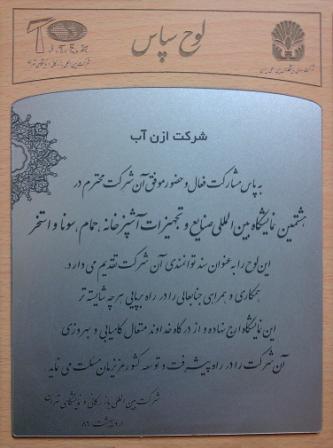 لوح سپاس
شرکت ازن آب
به پاس مشارکت فعال و حضور موفق آن شرکت محترم در
هشتمین نمایشگاه بین المللی صنایع و تجهیزات آشپزخانه ، حمام ، سونا و استخر
این لوح را به عنوان سند توانمندی آن شرکت تقدیم می دارد.
همکاری و همراهی جنابعالی را در راه برپایی هر چه شایسته تر
این نمایشگاه ارج نهاده و از درگاه خداوند متعال کامیابی و بهروزی
آن شرکت را در راه پیشرفت و توسعه کشور عزیزمان مسئلت می نماید.
شرکت بین المللی بازرگانی و نمایشگاهی تهران
اردیبهشت ۸۶